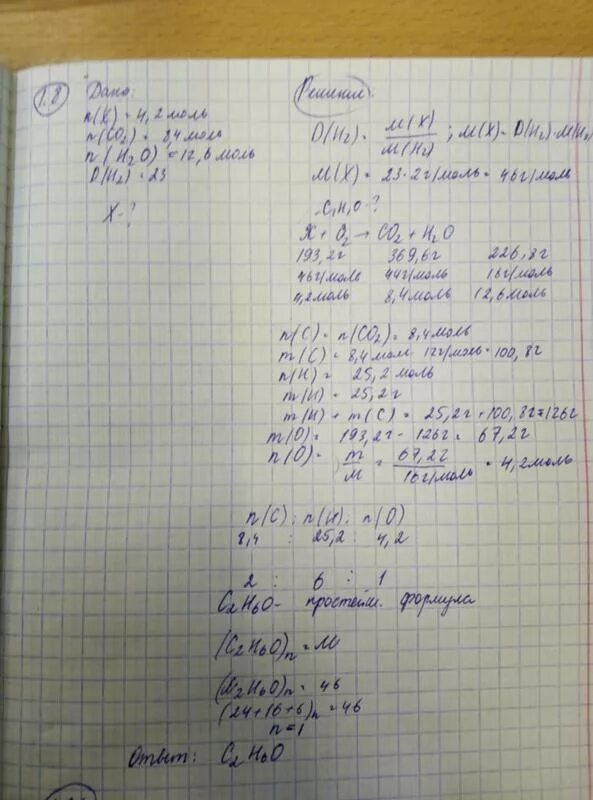 1.8 Дано: Решение:
n(X) = 4,2 моль
n(CO₂) = 8,4 моль
n(H₂O) = 12,6 моль
D(H₂) = 23
X - ?
D(H₂) = M(X)/M(H₂) ; M(X) = D(H₂)·M(H₂)
M(X) = 23·2г/моль = 46г/моль
C,H,O - ?
X + O₂ → CO₂ + H₂O
193,2г 369,6г 226,8г
46г/моль 44г/моль 18г/моль
4,2моль 8,4моль 12,6моль
n(C) = n(CO₂) = 8,4моль
m(C) = 8,4 моль · 12г/моль = 100,8г
n(H) = 25,2 моль
m(H) = 25,2г
m(H) + m(C) = 25,2г + 100,8г = 126г
m(O) = 193,2г - 126г = 67,2г
n(O) = m/M = 67,2г/16г/моль = 4,2моль
n(C) : n(H) : n(O)
8,4 : 25,2 : 4,2
2 : 6 : 1
C₂H₆O - простейш. формула
(C₂H₆O)n = M
(C₂H₆O)n = 46
(24+16+6)n = 46
n = 1
Ответ: C₂H₆O